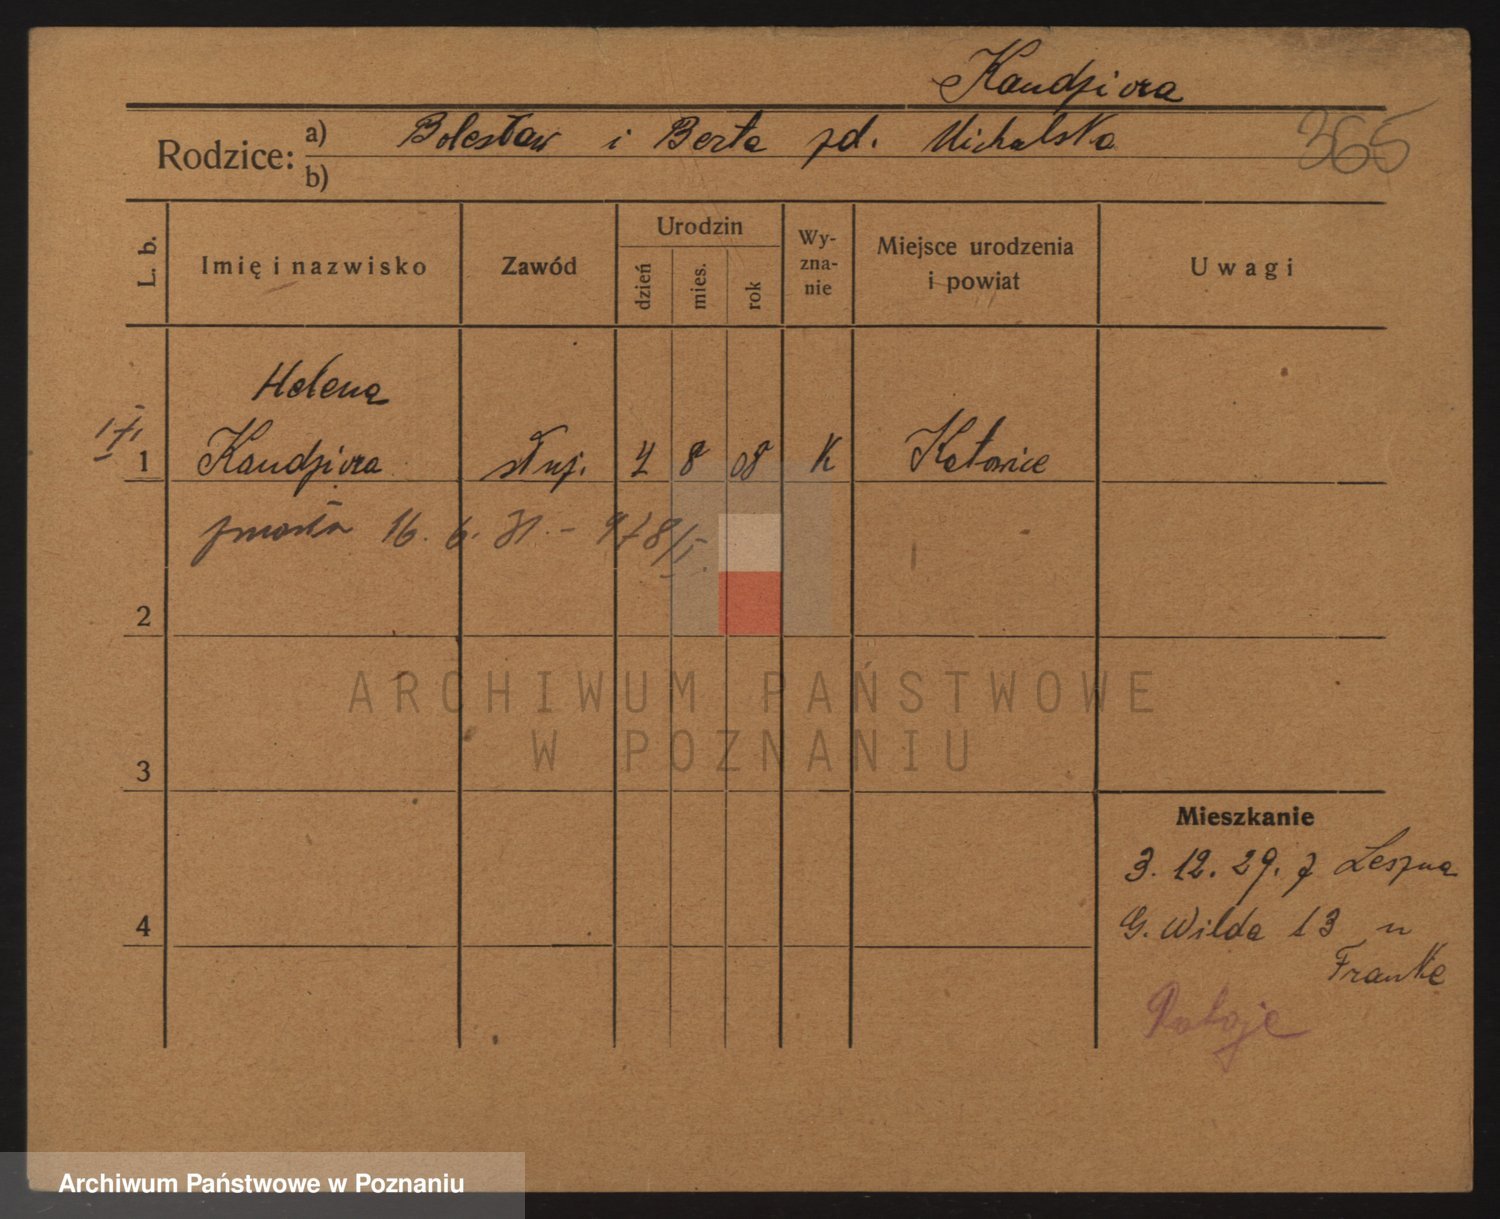 Kandziora
Rodzice: a) Bolesław i Berta zd. Michalska
b)
365
L. b. Imię i nazwisko Zawód Urodzin dzień mies. rok Wy-zna-nie Miejsce urodzenia i powiat Uwagi
Helena
1 Kandziora służ. 4 8 08 K Katowice
zmarła 16. 6. 31. - 978/I.
2
ARCHIWUM PAŃSTWOWE
W POZNANIU
3
Mieszkanie
3. 12. 29. z Leszna
4
G. Wilda 13 u
Franke
Archiwum Państwowe w Poznaniu